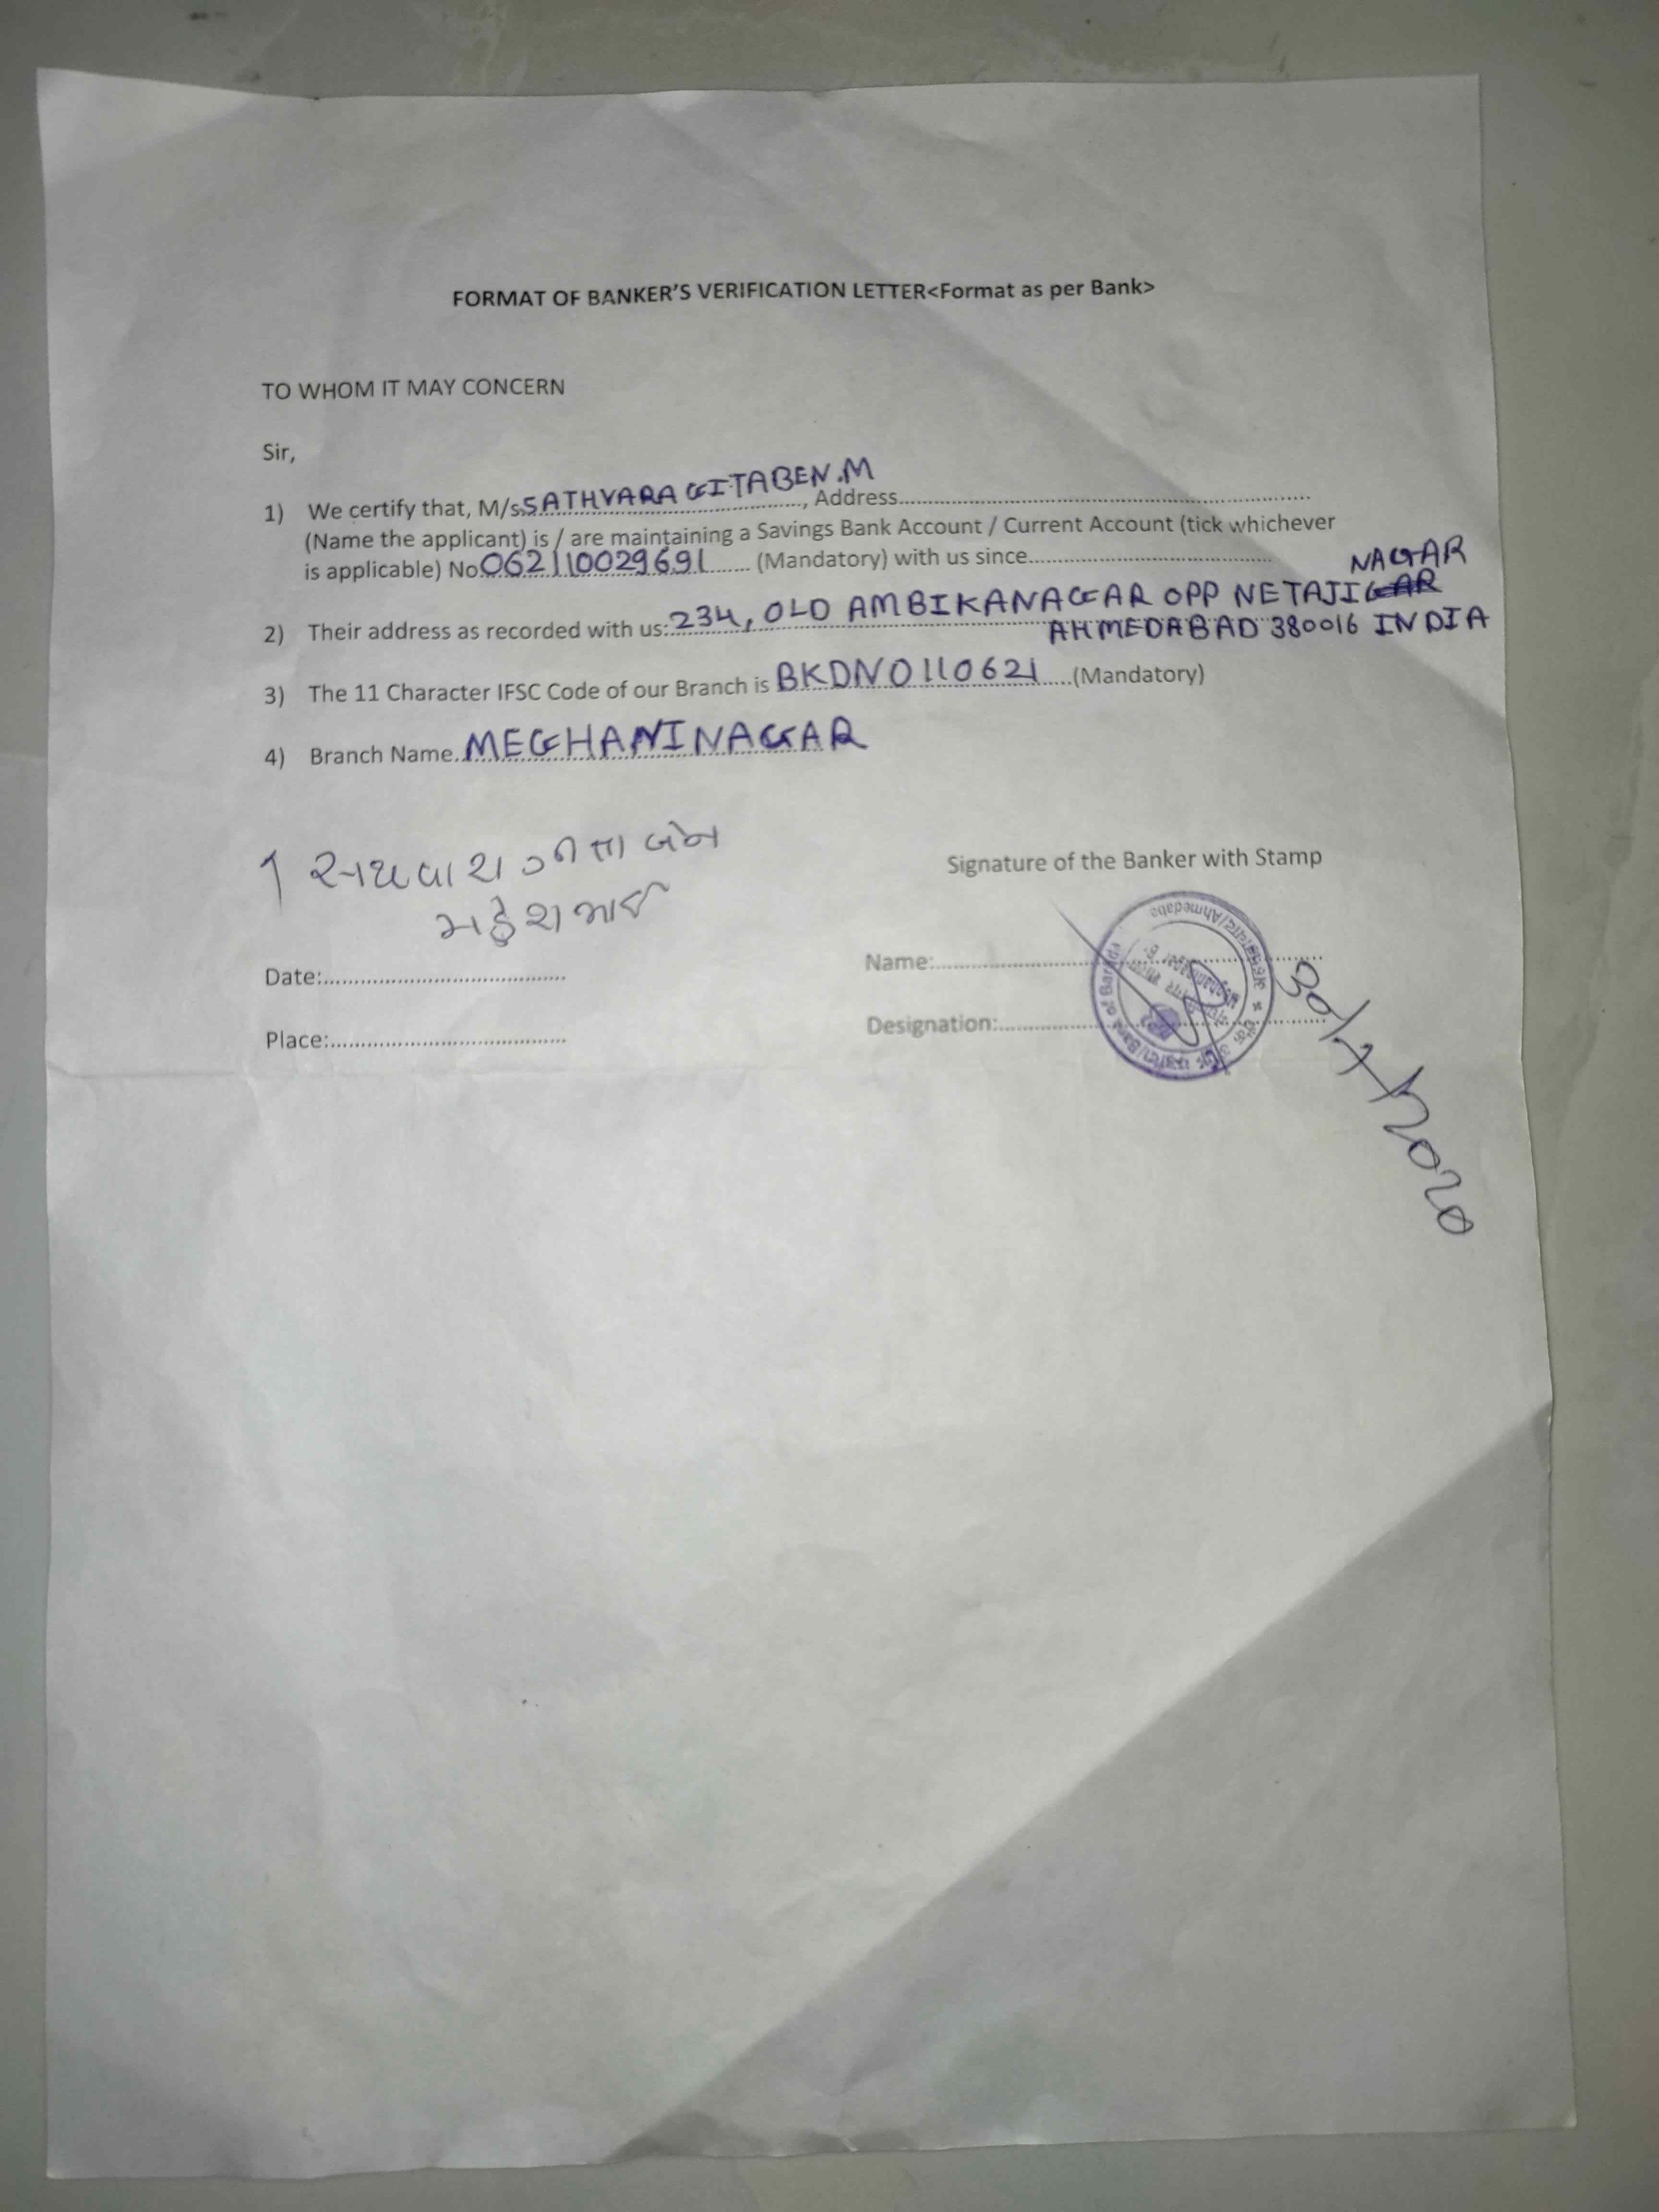 FORMAT OF BANKER'S VERIFICATION LETTER<Format as per Bank>
TO WHOM IT MAY CONCERN
Sir,
1) We certify that, M/s SATHVARA GITABEN.M, Address............
(Name the applicant) is / are maintaining a Savings Bank Account / Current Account (tick whichever
is applicable) No 062110029691 (Mandatory) with us since............
NAGAR
2) Their address as recorded with us: 234, OLD AMBIKANAGAR OPP NETAJI
AHMEDABAD 380016 INDIA
3) The 11 Character IFSC Code of our Branch is BKDN0110621 (Mandatory)
4) Branch Name. MEGHANINAGAR
સથવારા ગીતાબેન
મહેશભાઈ
Signature of the Banker with Stamp
Name:............
Date:............
Designation:............
Place:............
Bank of Baroda
30/7/2020